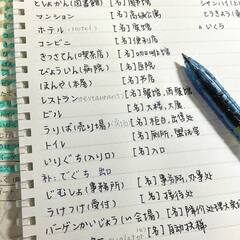 としょかん(図書館) [名]図書馆
マンション [名]高级公寓
ホテル(hotel) [名]宾馆
コンビニ [名]便利店
きっさてん(喫茶店) [名]咖啡馆
びょういん(病院) [名]医院
ほんや(本屋) [名]书店
レストラン(restaurant) [名]餐馆,西餐馆
ビル [名]大楼,大厦
うりば(売り場) [名]柜台,出售处
トイレ [名]厕所,盥洗室
いりぐち(入り口) [名]入口
补:でぐち 出口
じむしょ(事務所) [名]事务所,办事处
うけつけ(受付) [名]接待处
バーゲンかいじょう(~会場) [名]降价处理大卖场
[名]自动扶梯
シャンハイ
とうきょう
いくら